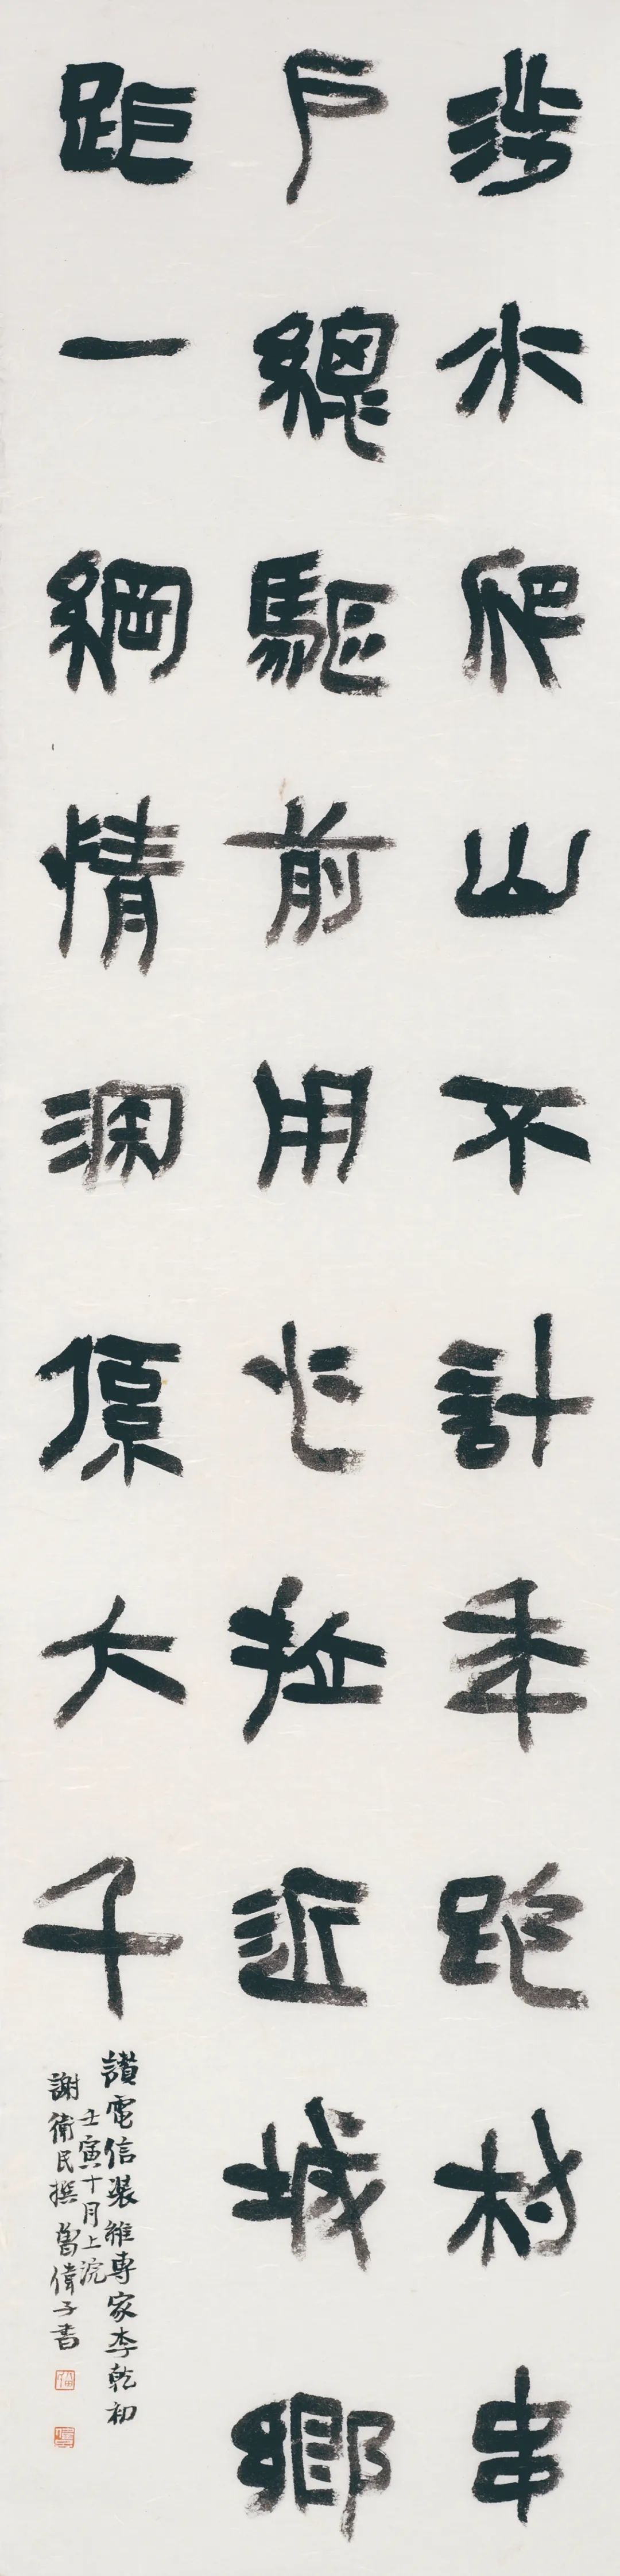 涉水爬山不計年跑村串
戶總驅前用心拉近城鄉
距一網情深大千
讃電信裝維專家李乾初
壬寅十月上浣
謝衛民撰 偉子書